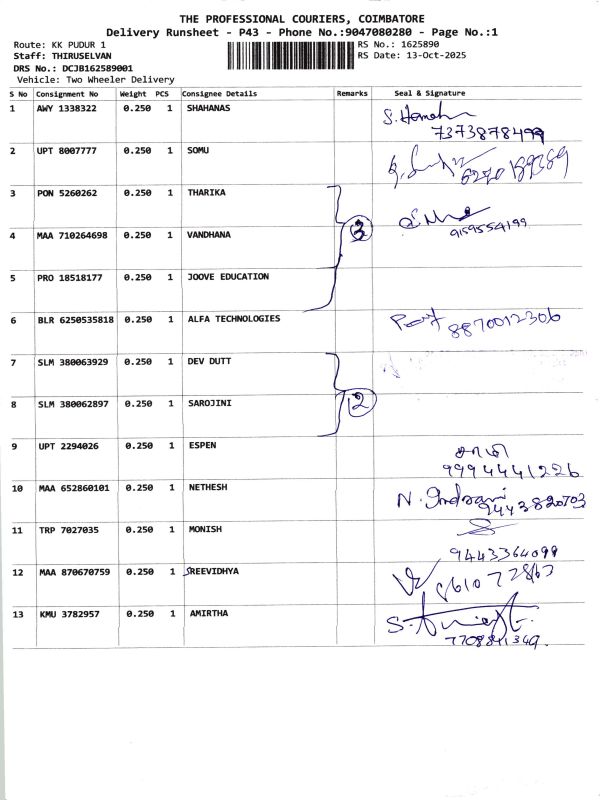 THE PROFESSIONAL COURIERS, COIMBATORE
Delivery Runsheet - P43 - Phone No.:9047080280 - Page No.:1
Route: KK PUDUR 1 RS No.: 1625890
Staff: THIRUSELVAN RS Date: 13-Oct-2025
DRS No.: DCJB162589001
Vehicle: Two Wheeler Delivery
S No Consignment No Weight PCS Consignee Details Remarks Seal & Signature
1 AWY 1338322 0.250 1 SHAHANAS
7373878499
2 UPT 8007777 0.250 1 SOMU
3 PON 5260262 0.250 1 THARIKA
9159554199
3
4 MAA 710264698 0.250 1 VANDHANA
5 PRO 18518177 0.250 1 JOOVE EDUCATION
6 BLR 6250535818 0.250 1 ALFA TECHNOLOGIES
8870012306
7 SLM 380063929 0.250 1 DEV DUTT
2
8 SLM 380062897 0.250 1 SAROJINI
9 UPT 2294026 0.250 1 ESPEN
9994441226
10 MAA 652860101 0.250 1 NETHESH N. Indrani
9443820703
11 TRP 7027035 0.250 1 MONISH
9443364099
12 MAA 870670759 0.250 1 SREEVIDHYA
13 KMU 3782957 0.250 1 AMIRTHA
7708841349.